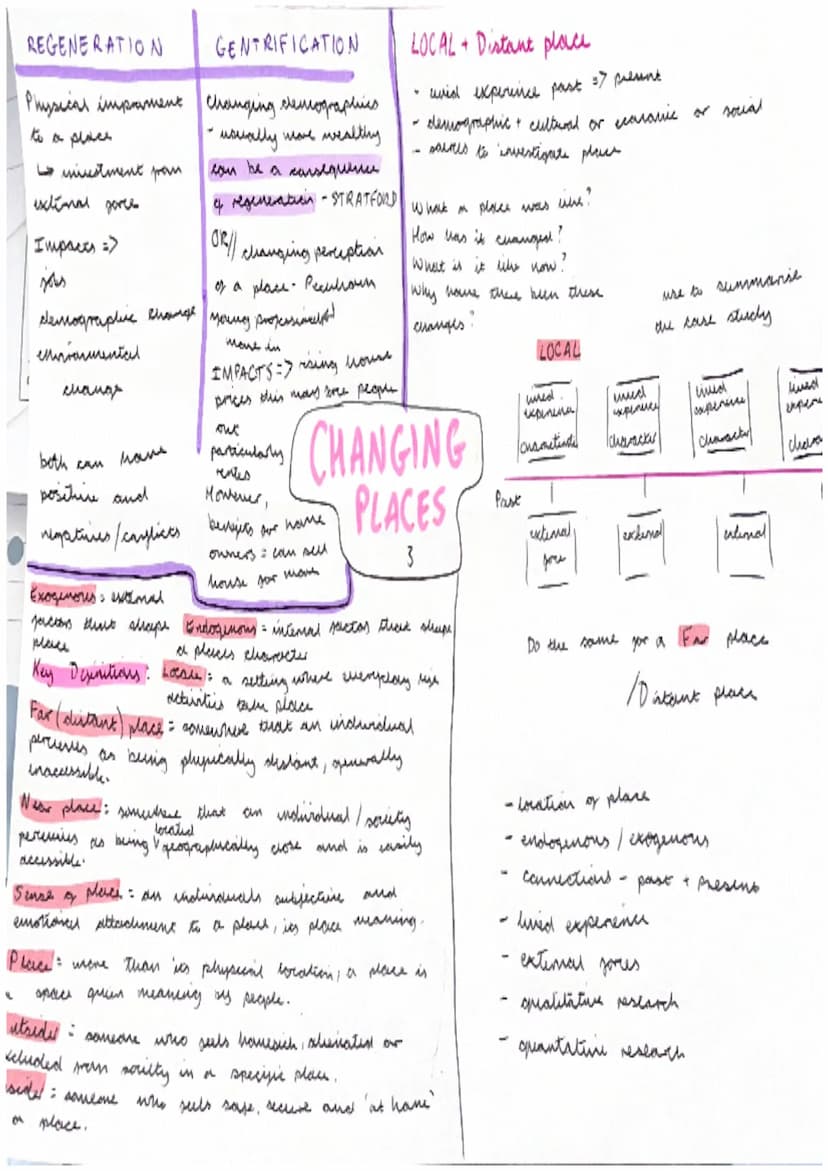 REGENERATION
Physical improvment
to a place
↳ investment from
external force
Impacts =>
jobs
demographic change
environmental
change
both can have
positive and
negatives/conflicts
GENTRIFICATION
Changing demographics
- usually more wealthy
can be a consequence
of regeneration - STRATFORD
OR// changing perception
of a place - Peckham
young professionals
move in
IMPACTS => rising house
prices this may force people
out
particularly
However,
benefits for home
owners = can sell
house for more
LOCAL + Distant place
- lived experience past => present
- demographic + cultural or economic or social
- sources to investigate place
What a place was like?
How has it changed?
What is it like now?
Why have there been these
changes?
use to summarise
the case study
LOCAL
lived
experience
characteristics
lived
experience
character
lived
experience
character
lived
Past
external
force
external
external
Do the same for a Far place
/Distant place
- location of place
- endogenous / exogenous
- connections - past + present
- lived experience
- external forces
- qualitative research
- quantative research
CHANGING
PLACES
3
Exogenous = external
factors that shape
place
Endogenous = internal factors that shape
a places character
Key Definitions:
Locale = a setting where everyday life
activities take place
Far (distant) place = somewhere that an individual
percieves as being physically distant, generally
inaccessible.
Near place = somewhere that an individual / society
percieves as being located geographically close and is easily
accessible.
Sense of place = an individuals subjective and
emotional attachment to a place, its place meaning.
Place = more than its physical location, a place is
a space given meaning by people.
utsider = someone who feels homesick, alienated or
xcluded from society in a specific place.
sider = someone who feels safe, secure and 'at home'
a place.